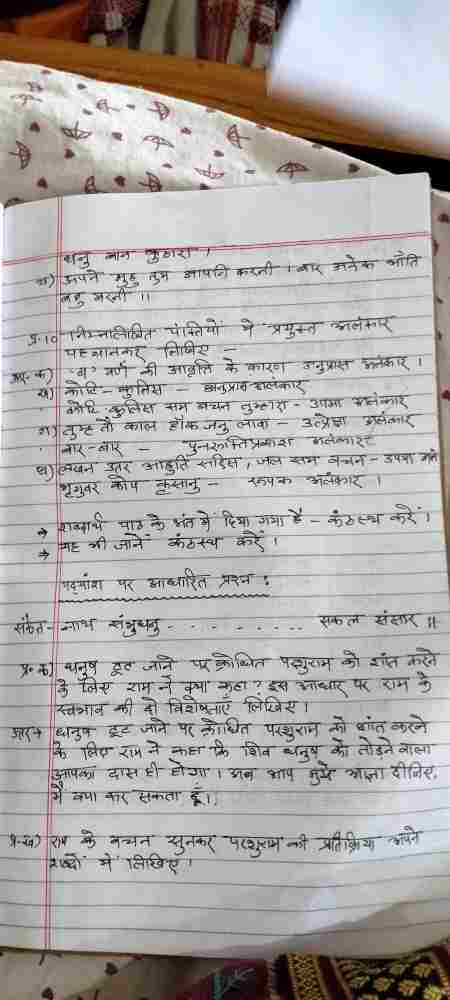 धनु बान कुठारा।
घ) अपने मुहु तुम आपनि करनी। बार अनेक भाँति
बहु बरनी।।
प्र-10 निम्नलिखित पंक्तियों में प्रयुक्त अलंकार
पहचानकर लिखिए -
उत्तर-क) 'ब' वर्ण की आवृति के कारण अनुप्रास अलंकार।
ख) कोटि - कुलिस - अनुप्रास अलंकार
कोटि कुलिस सम वचन तुम्हारा - उपमा अलंकार
ग) तुम्ह तौ काल हाँक जनु लावा - उत्प्रेक्षा अलंकार
बार-बार - पुनरुक्तिप्रकाश अलंकार
घ) लखन उतर आहुति सरिस, जल सम वचन - उपमा
भृगुवर कोप कृसानु - रूपक अलंकार।
→ शब्दार्थ पाठ के अंत में दिया गया है - कंठस्थ करें।
→ यह भी जानें कंठस्थ करें।
पद्यांश पर आधारित प्रश्न :
संकेत - नाथ संभुधनु - - - - - - - - - सकल संसार ||
प्र-क) धनुष टूट जाने पर क्रोधित परशुराम को शांत करने
के लिए राम ने क्या कहा? इस आधार पर राम के
स्वभाव की दो विशेषताएँ लिखिए।
उत्तर→ धनुष टूट जाने पर क्रोधित परशुराम को शांत करने
के लिए राम ने कहा कि शिव धनुष को तोड़ने वाला
आपका दास ही होगा। अब आप मुझे आज्ञा दीजिए,
मैं क्या कर सकता हूँ।
प्र-ख) राम के वचन सुनकर परशुराम की प्रतिक्रिया अपने
शब्दों में लिखिए।